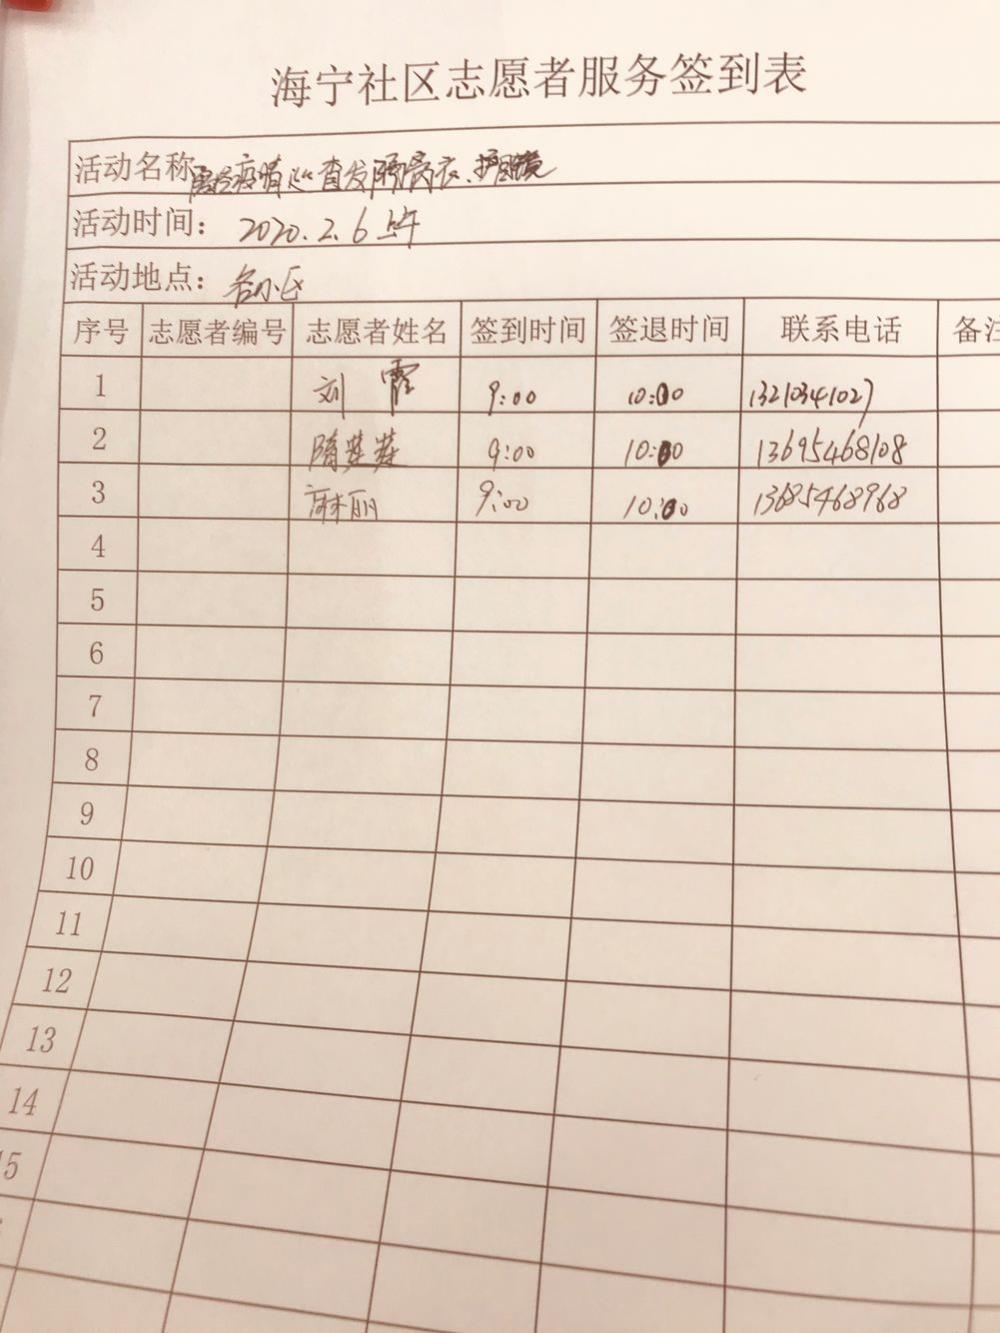 海宁社区志愿者服务签到表
活动名称 疫情巡查发隔离衣、护目镜
活动时间： 2020.2.6上午
活动地点： 各小区
序号 志愿者编号 志愿者姓名 签到时间 签退时间 联系电话 备注
1 刘霞 9:00 10:00 13210341027
2 隋燕燕 9:00 10:00 13695468108
3 麻丽 9:00 10:00 13685468968
4
5
6
7
8
9
10
11
12
13
14
15